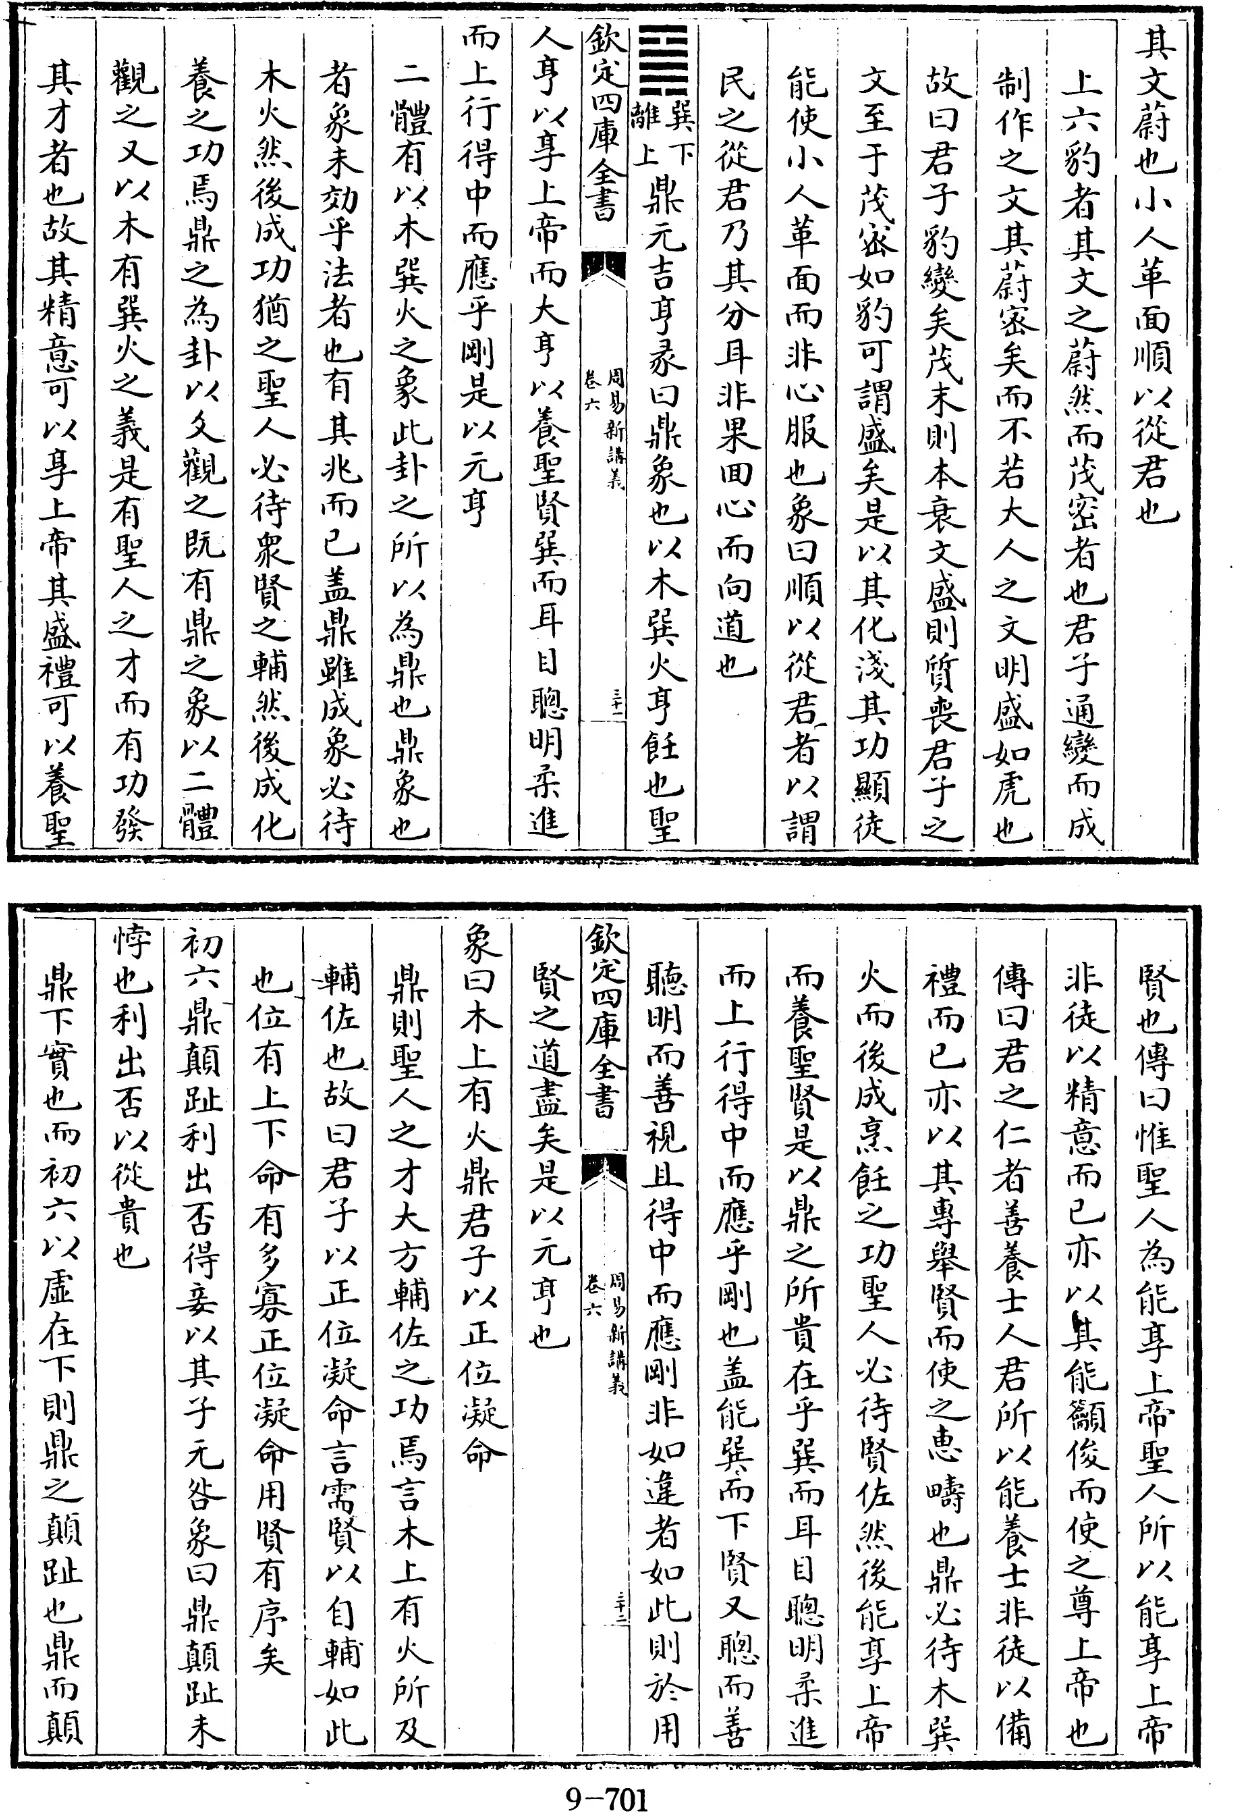 其文蔚也小人革面順以從君也
上六豹者其文之蔚然而茂密者也君子通變而成
制作之文其蔚密矣而不若大人之文明盛如虎也
故曰君子豹變矣茂末則本衰文盛則質喪君子之
文至于茂密如豹可謂盛矣是以其化淺其功顯徒
能使小人革面而非心服也象曰順以從君者以謂
民之從君乃其分耳非果面心而向道也
巽下
離上
鼎元吉亨彖曰鼎象也以木巽火亨飪也聖
欽定四庫全書
周易新講義
卷六
三十一
人亨以享上帝而大亨以養聖賢巽而耳目聰明柔進
而上行得中而應乎剛是以元亨
二體有以木巽火之象此卦之所以為鼎也鼎象也
者象未効乎法者也有其兆而已盖鼎雖成象必待
木火然後成功猶之聖人必待衆賢之輔然後成化
養之功焉鼎之為卦以爻觀之既有鼎之象以二體
觀之又以木有巽火之義是有聖人之才而有功發
其才者也故其精意可以享上帝其盛禮可以養聖
賢也傳曰惟聖人為能享上帝聖人所以能享上帝
非徒以精意而已亦以其能籲俊而使之尊上帝也
傳曰君之仁者善養士人君所以能養士非徒以備
禮而已亦以其專舉賢而使之惠疇也鼎必待木巽
火而後成烹飪之功聖人必待賢佐然後能享上帝
而養聖賢是以鼎之所貴在乎巽而耳目聰明柔進
而上行得中而應乎剛也盖能巽而下賢又聰而善
聽明而善視且得中而應剛非如違者如此則於用
欽定四庫全書
周易新講義
卷六
三十二
賢之道盡矣是以元亨也
象曰木上有火鼎君子以正位凝命
鼎則聖人之才大方輔佐之功焉言木上有火所及
輔佐也故曰君子以正位凝命言需賢以自輔如此
也位有上下命有多寡正位凝命用賢有序矣
初六鼎顛趾利出否得妾以其子无咎象曰鼎顛趾未
悖也利出否以從貴也
鼎下實也而初六以虛在下則鼎之顛趾也鼎而顛
9-701